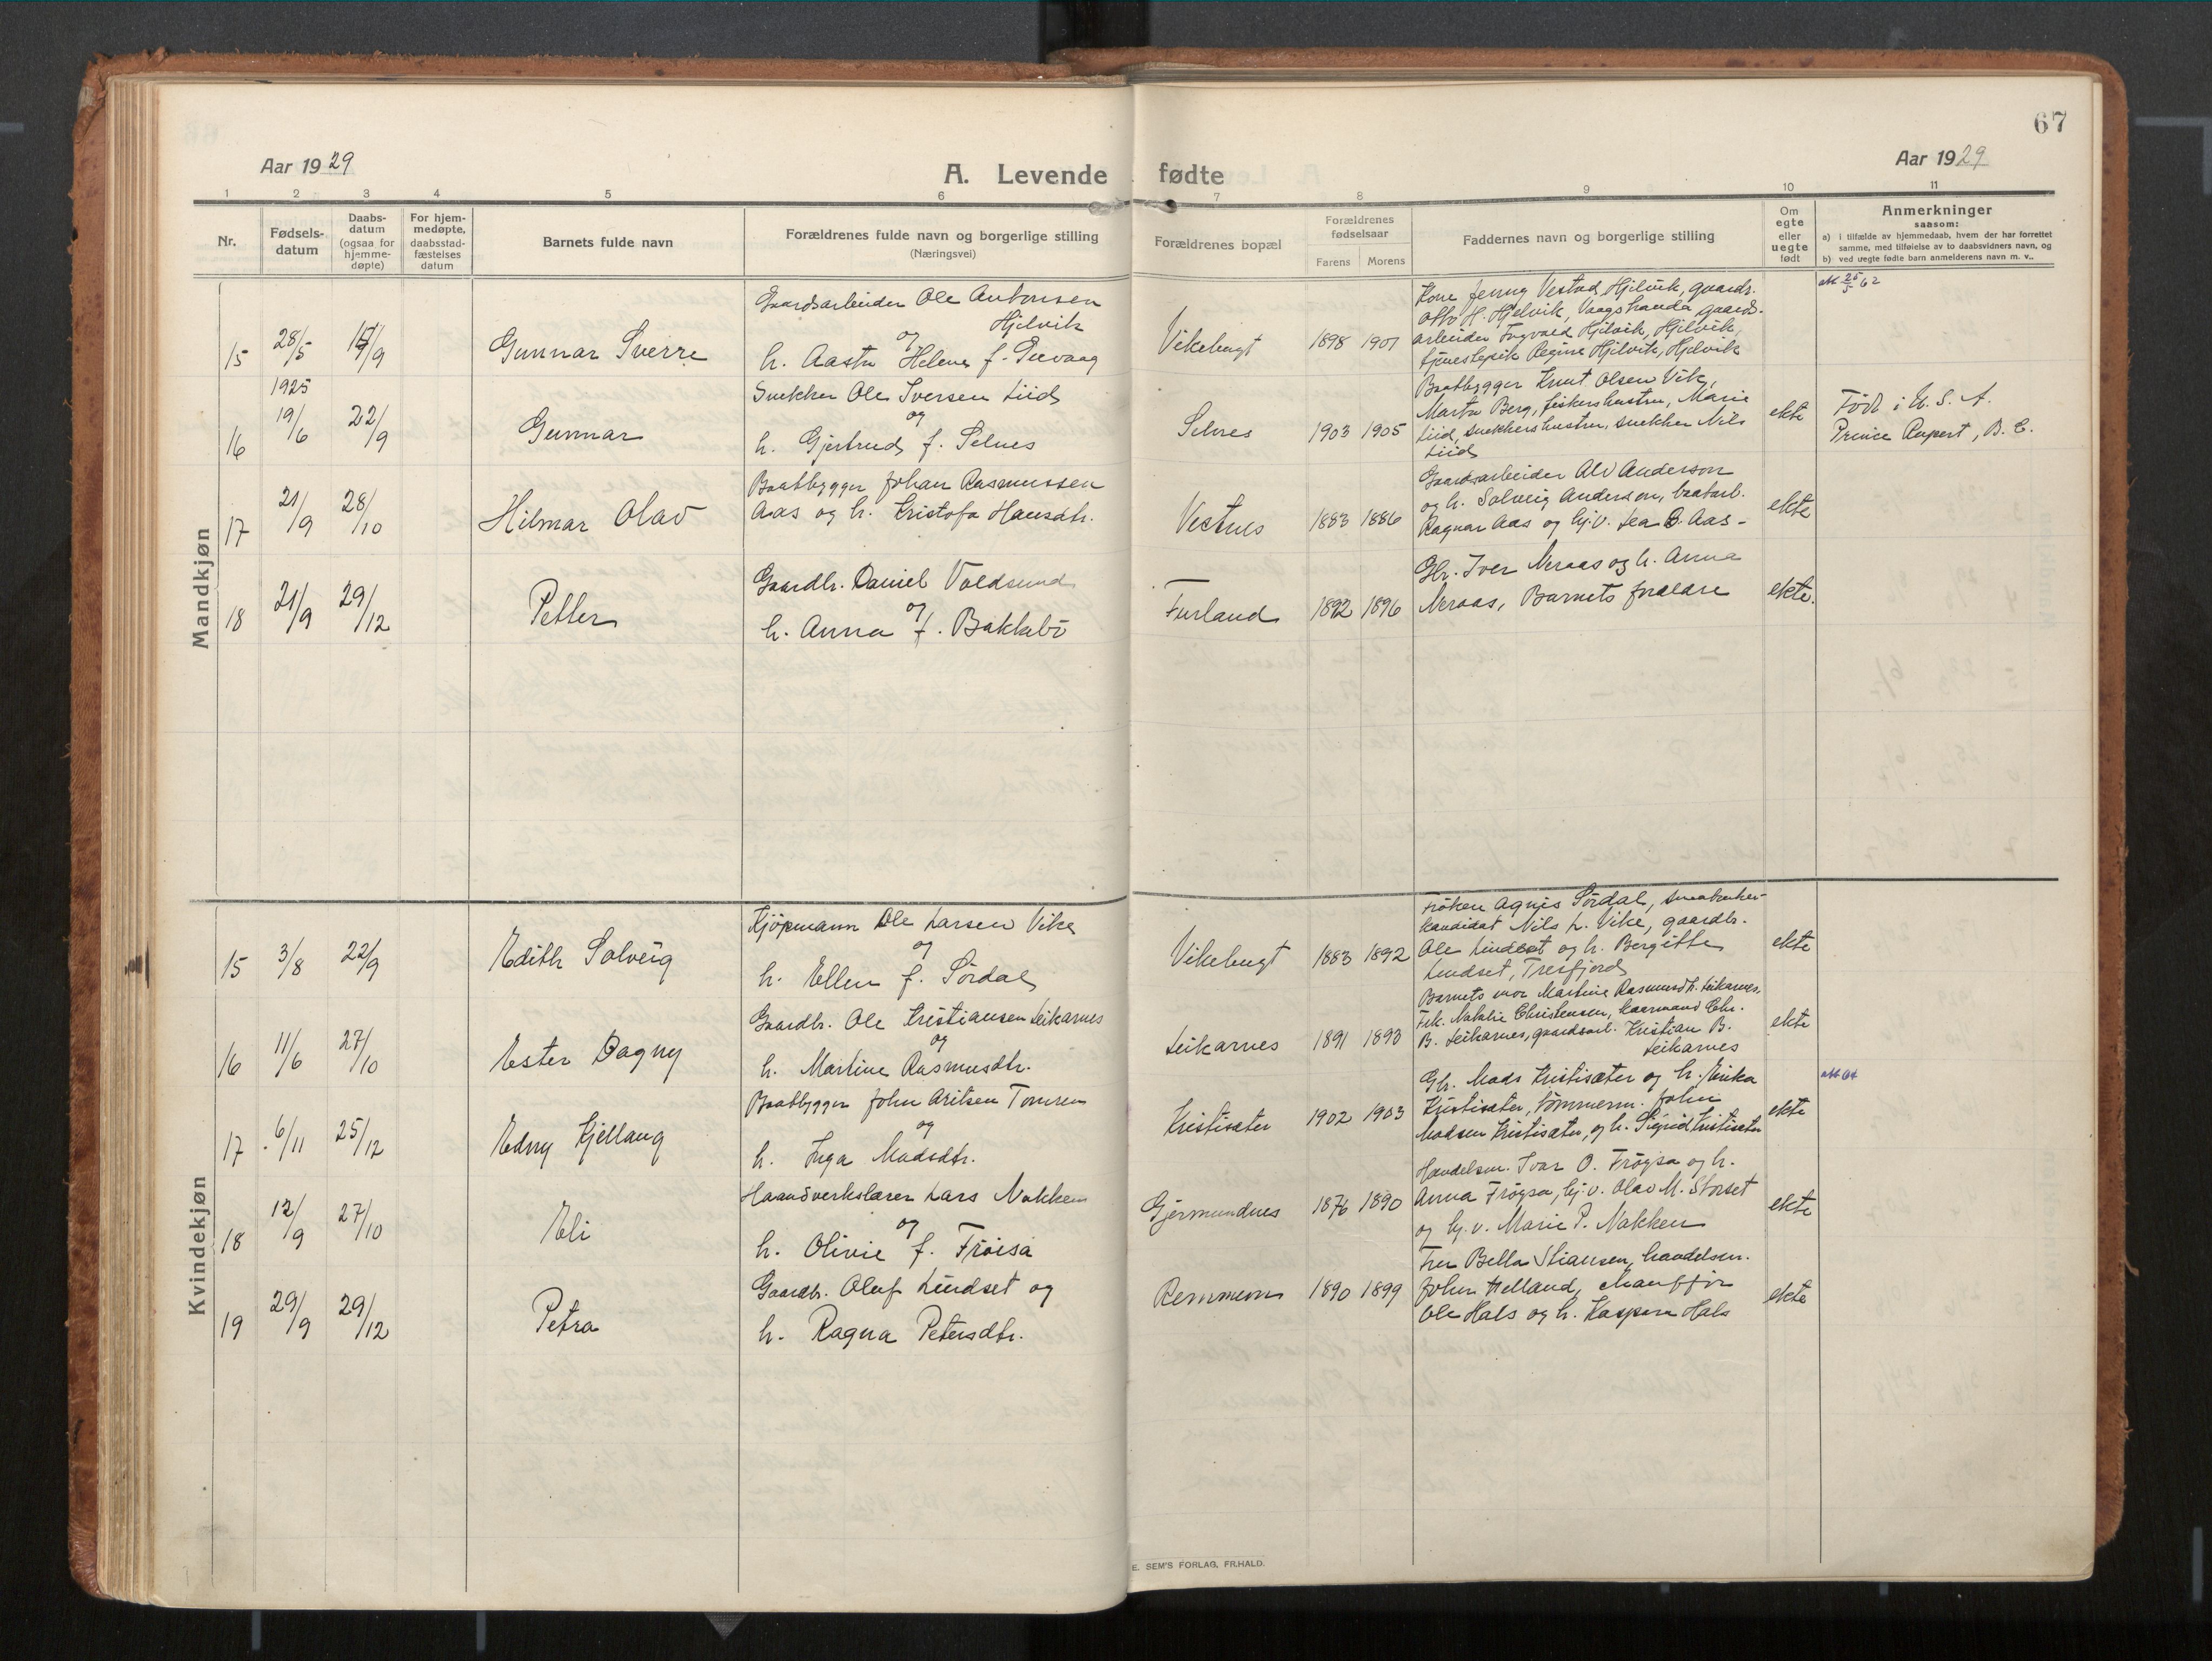 67
Aar 1929
A. Levende fødte
Aar 1929
1 2 3 4 5 6 7 8 9 10 11
Nr.
Fødsels-
datum
Daabs-
datum
(ogsaa for
hjemme-
døpte)
For hjem-
medøpte,
daabsstad-
fæstelses
datum
Barnets fulde navn
Forældrenes fulde navn og borgerlige stilling
(Næringsvei)
Forældrenes bopæl
Forældrenes
fødselsaar
Farens Morens
Faddernes navn og borgerlige stilling
Om
egte
eller
uegte
født
Anmerkninger
saasom:
a) i tilfælde av hjemmedaab, hvem der har forrettet
samme, med tilføielse av to daabsvidners navn, og
b) ved uegte fødte barn anmelderens navn m. v..
Mandkjøn
15
28/5
/9
Gunnar Sverre
Gaardsarbeider Ole Antonsen
Hjelvik
og
h. Aasta Helene f.
Vikebugt
1898 1901
Kone Jenny Vestad Hjelvik, gaardb.
Otto H. Hjelvik, Vaagstranda, gaards-
arbeider Ingvald Hjelvik, Hjelvik,
tjenestepik Regine Hjelvik, Hjelvik
25/5 62
16
1925
19/6
22/9
Gunnar
Snekker Ole Iversen Liid
og
h. Gjertrud f. Selnes
Selnes
1903 1905
Baatbygger Knut Olsen Vik,
Marta Berg, fiskershustru, Marie
Liid, snekkershustru, snekker Nils
Liid
ekte
Född i U. S. A.
Prince Rupert, B. C.
17
21/9
28/10
Hilmar Olav
Baatbygger Johan Rasmussen
Aas og h. Kristofa Hansdtr.
Vestnes
1883 1886
Gaardsarbeider Alv Anderson
og h. Solveig Anderson, baatarb.
Ragnar Aas og hj.v. Lea B. Aas -
ekte
18
21/9
29/12
Petter
Gaardbr. Daniel Voldsund
og
h. Anna f. Bakkebö
Furland
1892 1896
Gbr. Iver Neraas og h. Anna
Neraas, Barnets foraldre
ekte.
Kvindekjøn
15
3/8
22/9
Edith Solveig
Kjöpmann Ole Larsen Vike
og
h. Ellen f. Sördal
Vikebugt
1883 1892
Fröken Agnes Sördal,
kandidat Nils L. Vike, gaardbr.
Ole Lindset og h. Bergitte
Lindset, Tresfjord
ekte
16
11/6
27/10
Ester Dagny
Gaardbr. Ole Kristiansen Leikarnes
og
h. Martine Rasmusdtr.
Leikarnes
1891 1893
Barnets mor Martine Rasmusdtr. Leikarnes,
Frk. Natalie Christensen, kaarmand Chr.
B. Leikarnes, gaardsarb. Kristian B.
Leikarnes
ekte
17
6/11
25/12
Edny Kjellaug
Baatbygger John Aritsen Tomren
og
h. Inga Madsdtr.
Kristisæter
1902 1903
Gbr. Mads Kristisæter og h. Erika
Kristisæter, tömmerm. John
Madsen Kristisæter, og h. Sigrid Kristisæter
ekte
18
12/9
27/10
Eli
Haandverkslærer Lars Nakken
og
h. Olivie f. Fröisa
Gjermundnes
1876 1890
Handelsm. Ivar O. Fröysa og h.
Anna Fröysa, hj. v. Olav M. Storset
og hj. v. Marie P. Nakken
ekte
19
29/9
29/12
Petra
Gaardbr. Oluf Lindset og
h. Ragna Petersdtr.
Remmem
1890 1899
Fru Bella Stiansen, handelsm.
John Helland, chaufför
Ole Hals og h. Kaspara Hals
ekte
E. SEM'S FORLAG, FR.HALD.